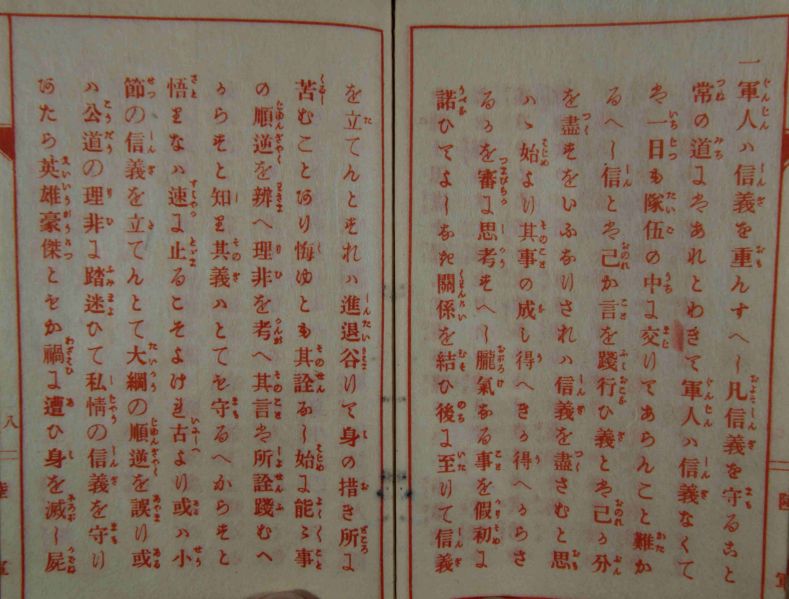 一軍人ハ信義を重んすへし凡信義を守ること
常の道にはあれとわきて軍人ハ信義なくて
は一日も隊伍の中に交りてあらんこと難か
るへし信とは己か言を踐行ひ義とは己か分
を盡すをいふなりされハ信義を盡さむと思
ハヽ始より其事の成し得へきか得へからさ
るかを審に思考すへし朧氣なる事を假初に
諾ひてよしなき關係を結ひ後に至りて信義
を立てんとすれハ進退谷りて身の措き所に
苦むことあり悔ゆとも其詮なし始に能々事
の順逆を辨へ理非を考へ其言は所詮踐むへ
からすと知り其義ハとても守るへからすと
悟りなハ速に止るこそよけれ古より或ハ小
節の信義を立てんとて大綱の順逆を誤り或
ハ公道の理非に踏迷ひて私情の信義を守り
あたら英雄豪傑ともか禍に遭ひ身を滅し屍
八
陸
軍